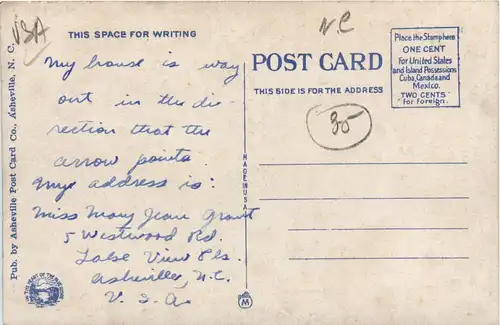 VSA
N C
THIS SPACE FOR WRITING
My house is way
out in the di-
rection that the
arrow points.
My address is:
Miss Mary Jean Grant
5 Westwood Rd.
Lake View
Asheville, N.C.
U.S.A.
Pub. by Asheville Post Card Co., Asheville, N. C.
MADE IN USA
M
POST CARD
THIS SIDE IS FOR THE ADDRESS
Place the Stamp here
ONE CENT
for United States
and Island Possessions
Cuba, Canada and
Mexico.
TWO CENTS
for Foreign.
35